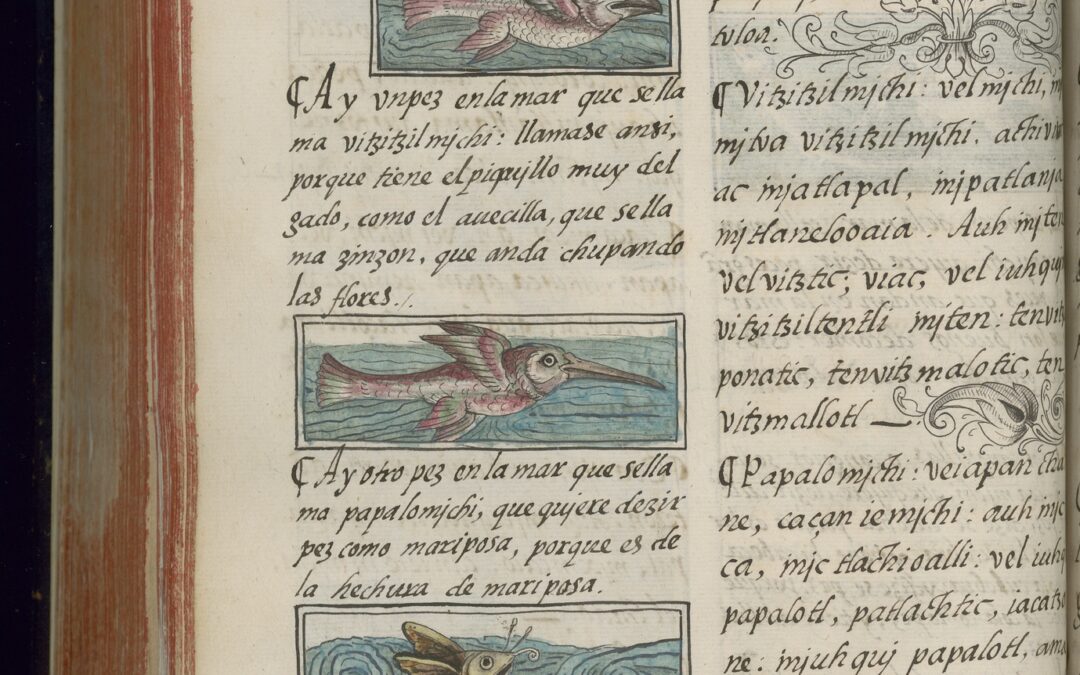 ¶ Ay vnpez enla mar que sella
ma vitzitzil mjchi: llamase ansi,
porque tiene el piquillo muy del
gado, como el auecilla, que sella
ma zinzon, que anda chupando
las flores./.
¶ Ay otro pez en la mar que sella
ma papalomjchi, que qujere dezir
pez como mariposa, porque es de
la hechura de mariposa.
tuloa.
¶ Vitzitzil mjchi: vel mjchi,
mjtoa vitzitzil mjchi.
ac injatlapal, injpatlanja
mjtlanelooaia. Auh injten
vel vitztic, viac, vel iuhquj
vitzitziltentli injten: tenvitz
ponatic, tenvitzmalotic, ten
vitzmallotl
¶ Papalo mjchi: veiapan
ne, caçan ie mjchi: auh
ca, injc tlachioalli: vel iuh
papalotl, patlachtic,
ne: injuhquj papalotl,